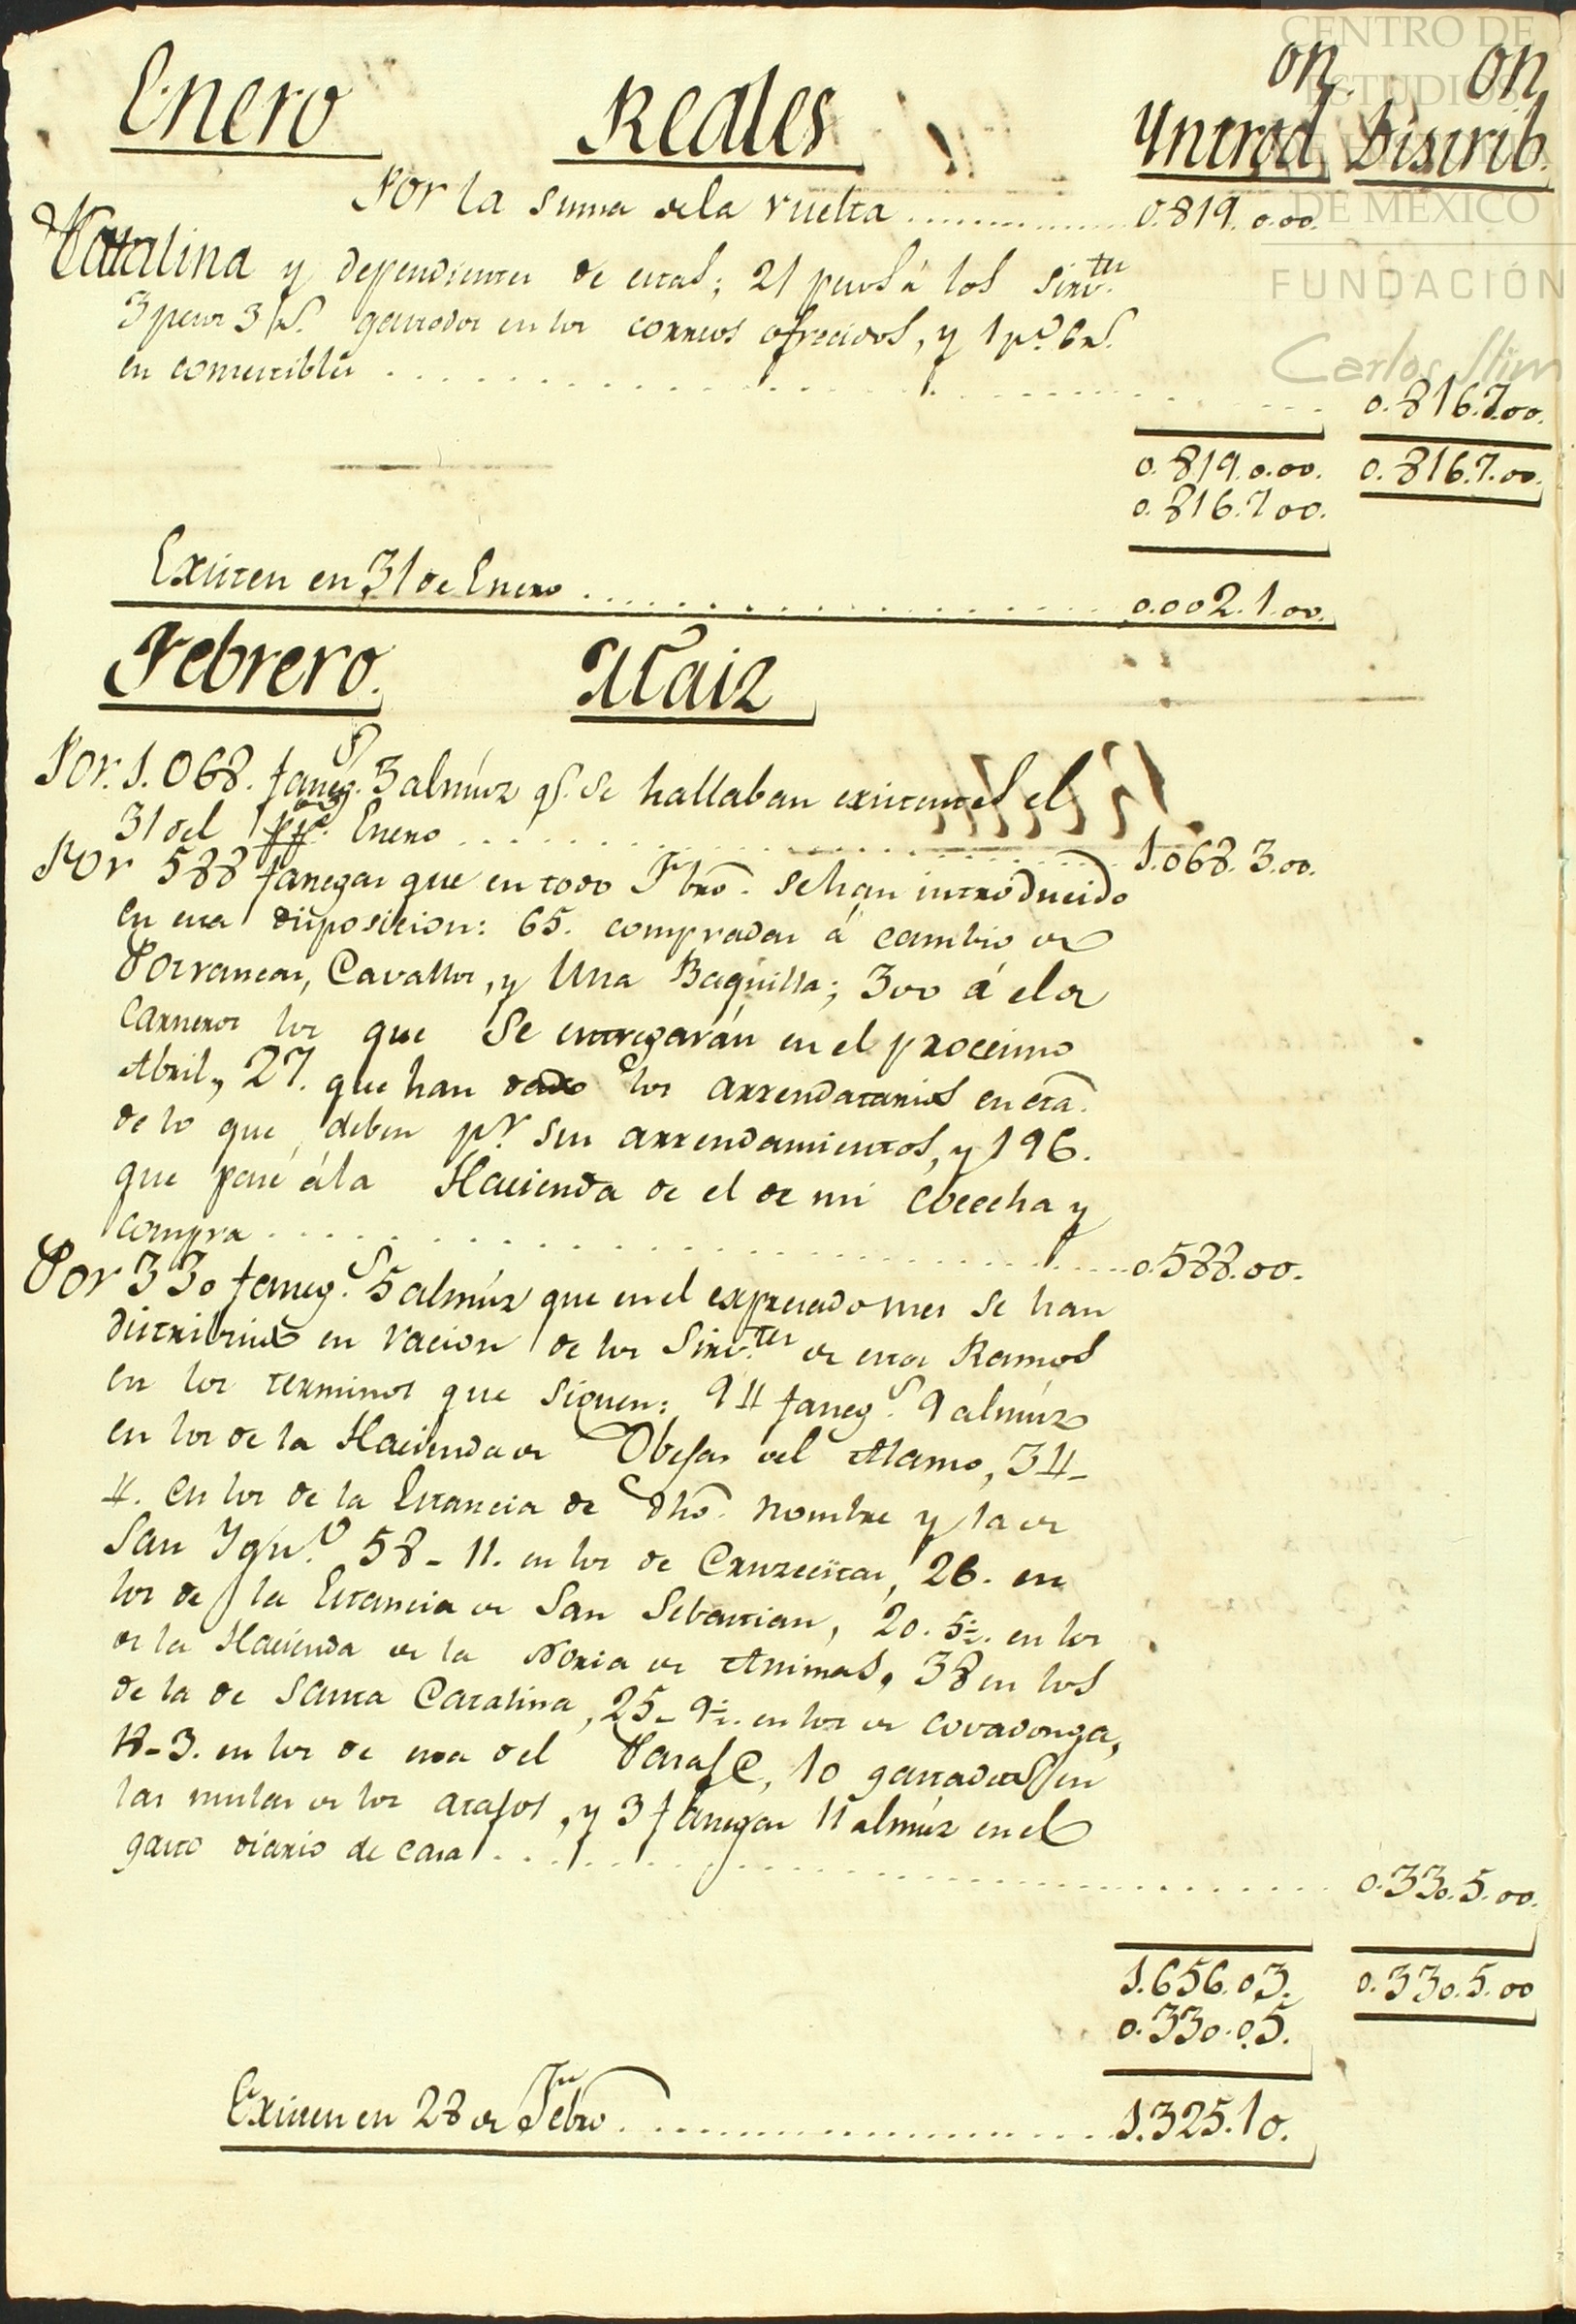 Enero Reales Yntrod.on Distrib.on
Por la suma de la vuelta 0.819.0.00.
Catalina y dependientes de estas; 21 pesos á los sirv.tes
3 pesos 3 rs. gastados en los correos ofrecidos, y 1 p.o 6 rs.
en comestibles 0.816.7.00.
0.819.0.00. 0.816.7.00.
0.816.7.00.
Existen en 31 de Enero 0.002.1.00.
Febrero. Maiz
Por. 1.068. faneg.s 3 almúz q.e se hallaban existentes el
31 del pp.o Enero 1.068.3.00.
Por 588 fanegas que en todo Fbro. se han introducido
en esta disposicion: 65. compradas á cambio de
Potrancas, Cavallos, y Una Baquilla; 300 á el de
Carneros los que se entregarán en el procsimo
Abril, 27. que han dado los arrendatarios en cta.
de lo que deben p.r sus arrendamientos, y 196.
que pasé á la Hacienda de el de mi cosecha y
compra 0.588.00.
Por 330 faneg.s 5 almúz que en el expresado mes se han
distribuido en racion de los Sirv.tes de estos Ramos
en los terminos que siguen: 94 faneg.s 9 almúz
en los de la Hacienda de Obejas del Alamo, 34-
4. en los de la Estancia de dho. nombre y la de
San Ign.o 58-11. en los de Cruzecitas, 26. en
los de la Estancia de San Sebastian, 20.5½. en los
de la Hacienda de la Noria de Animas, 38 en los
de la de Santa Catalina, 25-9½. en los de Covadonga,
18-3. en los de esta del Parage, 10 gastados en
las mulas de los atajos, y 3 fanegas 11 almúz en el
gasto diario de casa 0.330.5.00.
1.656.03. 0.330.5.00
0.330.05.
Existen en 28 de Febro 1.325.10.
CENTRO DE
ESTUDIOS
DE MÉXICO
FUNDACIÓN
Carlos Slim